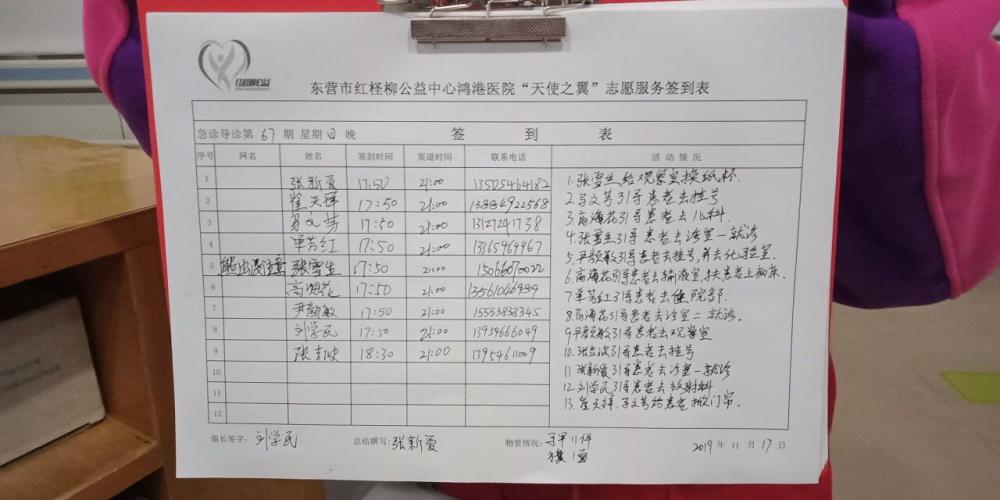 红柽柳公益
东营市红柽柳公益中心鸿港医院“天使之翼”志愿服务签到表
急诊导诊第 67 期 星期日 晚 签 到 表
序号 网名 姓名 签到时间 签退时间 联系电话 活动情况
1 张新爱 17:50 21:00 13505464182
2 崔天祥 17:50 21:00 13884922568
3 17:50 21:00 13127241738
4 单芳红 17:50 21:00 13165469467
5 张雪生 17:50 21:00 15066070022
6 高海花 17:50 21:00 13561046989
7 尹颜敏 17:50 21:00 15553838345
8 刘学民 17:50 21:00 13954666049
9 18:30 21:00 13954611009
10
11
12
1.张雪生给观察室换纸杯
2.引导患者去挂号
3.高海花引导患者去儿科
4.张雪生引导患者去诊室一就诊
5.尹颜敏引导患者去挂号,并去化验室
6.高海花引导患者去输液室,扶患者上病床
7.单芳红引导患者去住院部
8.高海花引导患者去诊室二就诊
9.尹颜敏引导患者去观察室
10.引导患者去挂号
11.张新爱引导患者去诊室一就诊
12.刘学民引导患者去放射科
13.崔天祥.给患者掀门帘.
组长签字: 刘学民 总结撰写: 张新爱 物资情况: 马甲11件
旗1面
2019 年 11 月 17 日